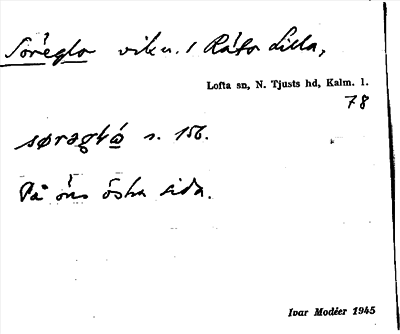 Söregla vik n. / Råtö Lilla,
Lofta sn, N. Tjusts hd, Kalm. l.
78
s. 156.
På öns östra sida.
Ivar Modéer 1945